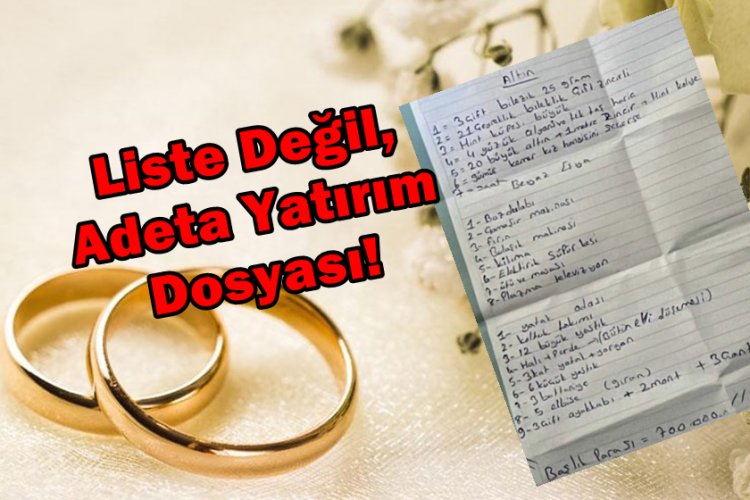 Liste Değil,
Adeta Yatırım
Dosyası!
Altın
1 = 3 Çift bilezik 25 gram
2 = 21 Gevreklik bileklik Çift Zincirli
3 = Hint küpesi büyük
4 = 4 yüzük alyans ve tek taş hariç
5 = 20 büyük altın + 1 metre Zincir + Hint kolye
6 = gümüş kemer kız hangisini isterse
7 = saat Beyaz Eşya
1 - Buzdolabı
2 - Çamaşır makinası
3 - Fırın
4 - Bulaşık makinesi
5 - klima
6 - Elektirik süpürkesi
7 - ütü ve masası
8 - Plazma televizyon
1 - yatak odası
2 - koltuk takımı
3 - 12 büyük yastık
4 - Halı + Perde → (Bütün evi döşemesi)
5 - 3 kat yatak + yorgan
6 - 6 küçük yastık
7 - 3 battaniye
8 - 5 elbise
9 - 3 çift ayakkabı + 2 mont + 3 Çanta
Başlık Parası = 700.000